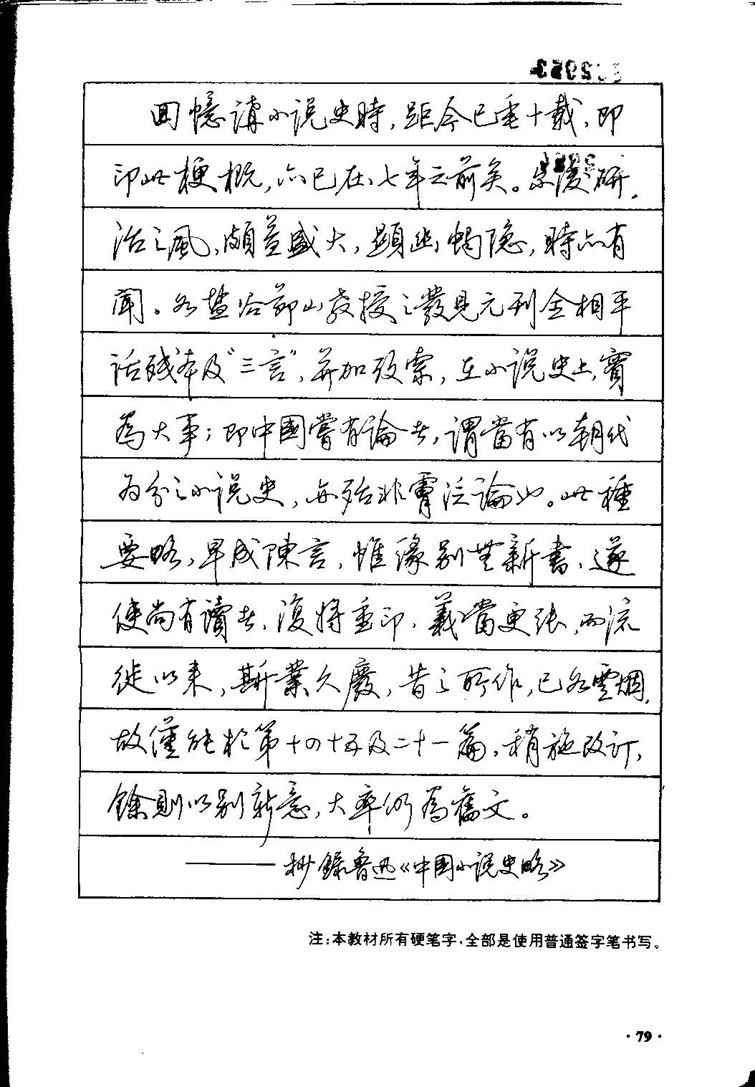 回憶講小說史時，距今已垂十載，即
印此梗概，亦已在七年之前矣。尔後研
治之風，頗益盛大，顯幽燭隐，時亦有
聞。如塩谷節山教授之發見元刊全相平
話殘本及“三言”，并加攷索，在小說史上，實
為大事；即中國嘗有論者，謂當有以朝代
为分之小说史，亦殆非膚泛論也。此種
要略，早成陳言，惟緣别無新書，遂
使尚有讀者，復将重印，義當更张，而流
徙以来，斯業久廢，昔之所作，已如雲烟，
故僅能於第十四十五及二十一篇，稍施改订，
餘則以别無新意，大率仍為舊文。
——抄錄魯迅《中國小说史略》
注：本教材所有硬笔字，全部是使用普通签字笔书写。
·79·